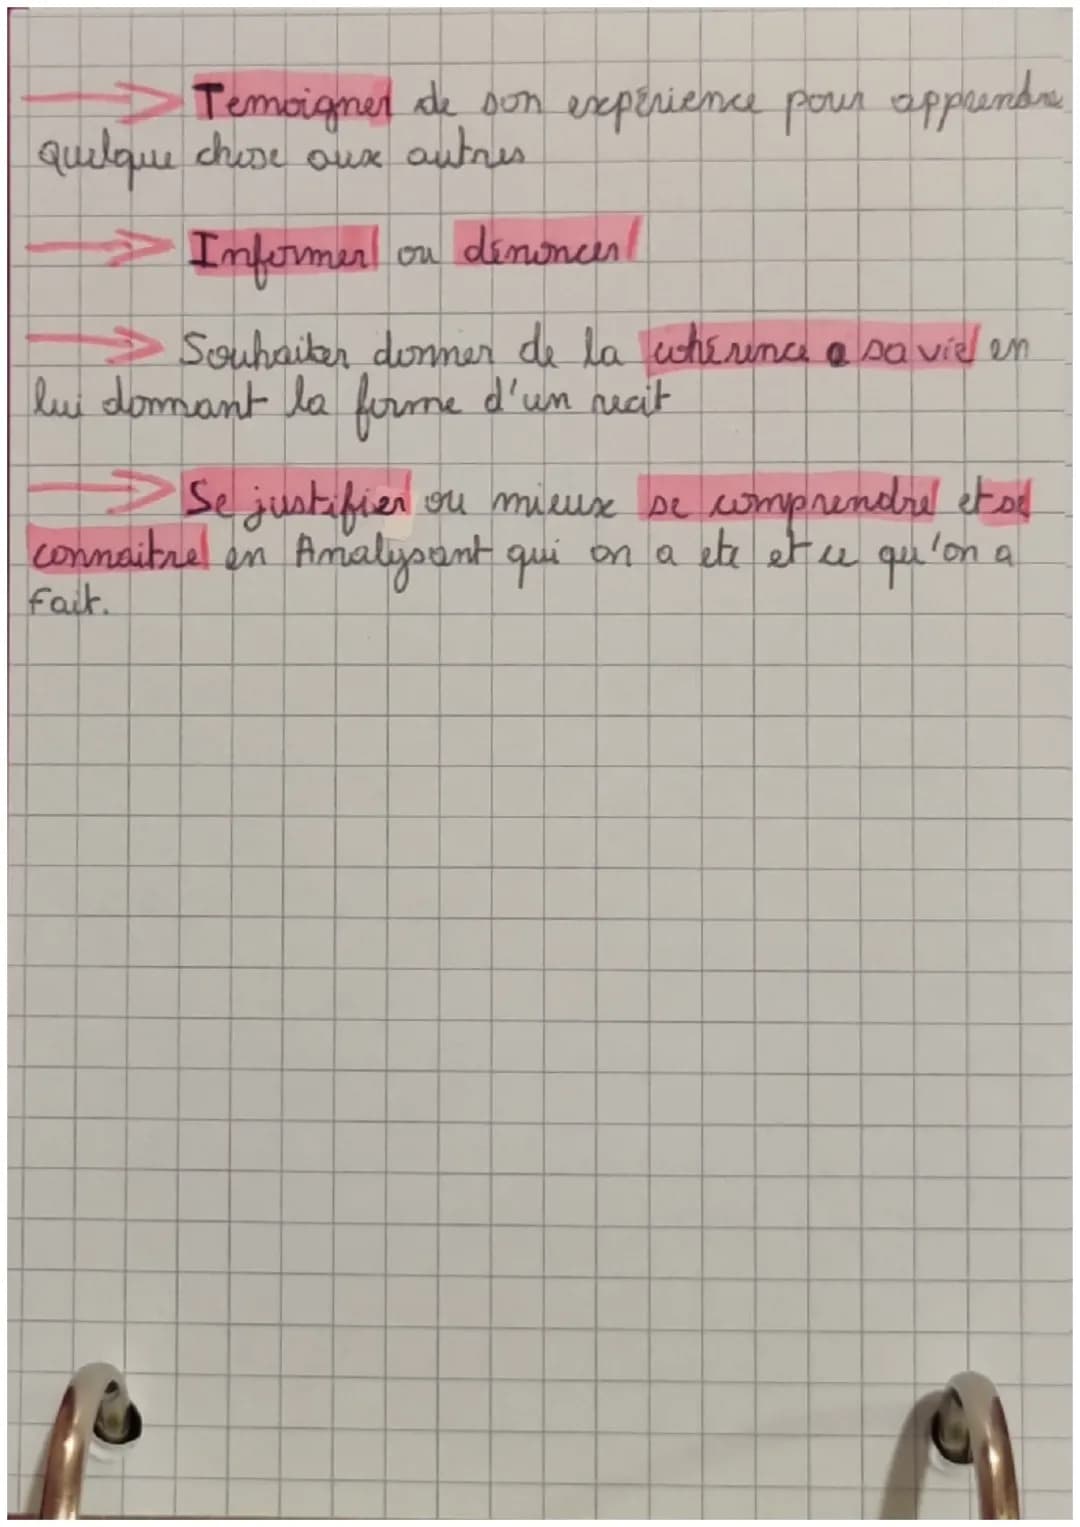 → Temoigner de son expérience pour apprendre
quelque chose aux autres
→ Informer ou dénoncer
→ Souhaiter donner de la cohérence a sa vie en
lui donnant la forme d'un recit
→ Se justifier ou mieux se comprendre et se
connaitre en Analysant qui on a ete et ce qu'on a
fait.